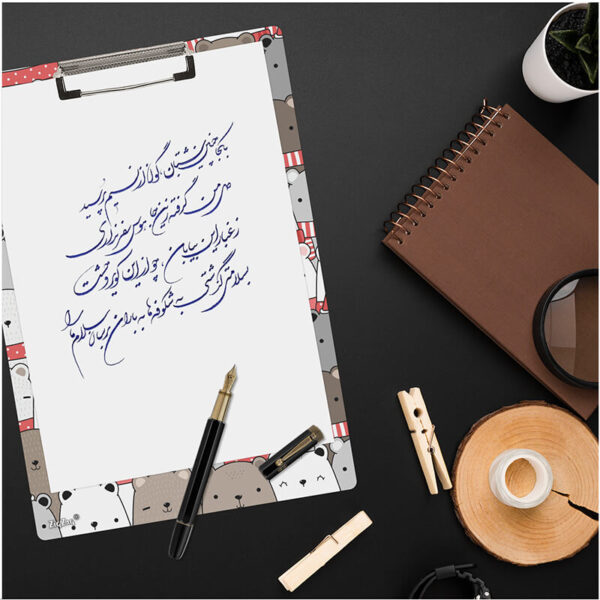 بکجا چنین شتابان گون از نسیم پرسید
دل من گرفته زینجا هوس سفر نداری
ز غبار این بیابان چو ازین کویر وحشت
بسلامتی گذشتی به شکوفه‌ها به باران برسان سلام ما را